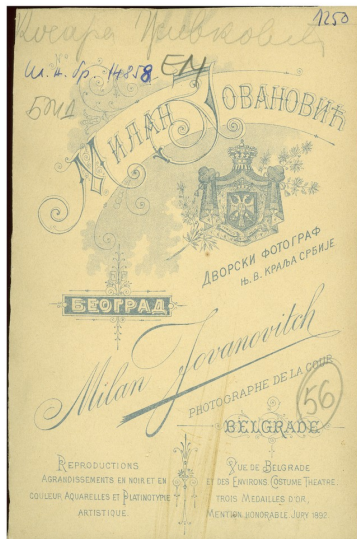 1250
Косара Цвјетковић
И. н. бр. 14858
ЕМ
МИЛАН ЈОВАНОВИЋ
ДВОРСКИ ФОТОГРАФ
Њ. В. КРАЉА СРБИЈЕ
БЕОГРАД
Milan Jovanovitch
PHOTOGRAPHE DE LA COUR
56
BELGRADE
REPRODUCTIONS
AGRANDISSEMENTS EN NOIR ET EN
COULEUR, AQUARELLES ET PLATINOTYPIE
ARTISTIQUE.
VUE DE BELGRADE
ET DES ENVIRONS COSTUME THEATRE.
TROIS MEDAILLES D'OR,
MENTION HONORABLE JURY 1892.